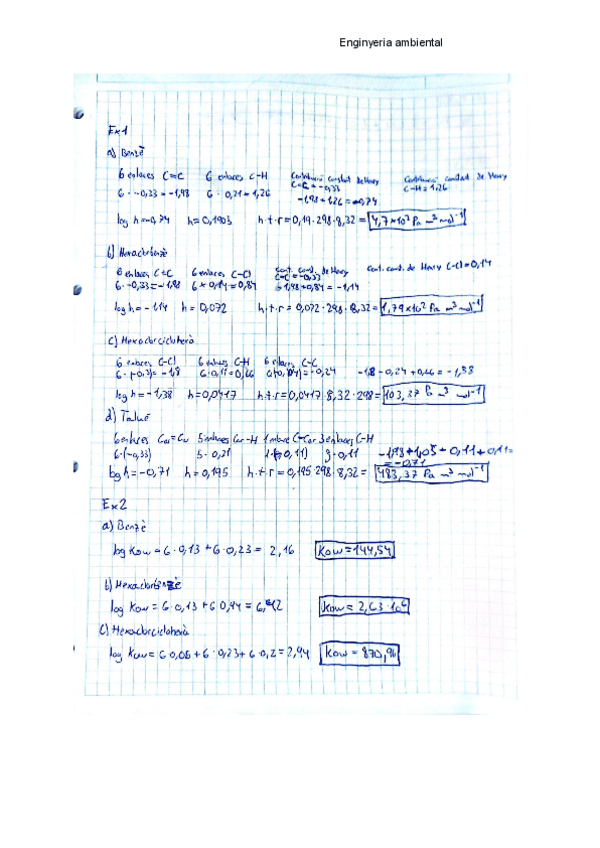 Enginyeria ambiental
Ex1
a) Benzè
6 enlaces C=C 6 enlaces C-H Contribució constant de Henry Contribució constant de Henry
6 · -0,33 = -1,98 6 · 0,21 = 1,26 C=C = -0,33 C-H = 1,26
-1,98 + 1,26 = -0,74
log h = -0,74 h = 0,1903 h·t·r = 0,19·298·8,32 = 4,7×10² Pa m³ mol⁻¹
b) Hexaclorbenzè
6 enlaces C=C 6 enlaces C-Cl Cont. const. de Henry Cont. const. de Henry C-Cl = 0,14
6·-0,33 = -1,98 6 × 0,14 = 0,84 C=C = -0,33
-1,98 + 0,84 = -1,14
log h = -1,14 h = 0,072 h·t·r = 0,072·298·8,32 = 1,79×10² Pa m³ mol⁻¹
c) Hexaclorciclohexà
6 enlaces C-Cl 6 enlaces C-H 6 enlaces C-C
6·(-0,3) = -1,8 6·0,11 = 0,66 6(-0,04) = -0,24 -1,8 - 0,24 + 0,66 = -1,38
log h = -1,38 h = 0,0417 h·t·r = 0,0417·8,32·298 = 103,37 Pa m³ mol⁻¹
d) Toluè
6 enlaces Car=Car 5 enlaces Car-H 1 enlace C-Car 3 enlaces C-H
6·(-0,33) 5·0,21 1·(0,11) 3·0,11 -1,98 + 1,05 + 0,11 + 0,11 =
= -0,71
log h = -0,71 h = 0,195 h·t·r = 0,195·298·8,32 = 483,37 Pa m³ mol⁻¹
Ex2
a) Benzè
log Kow = 6·0,13 + 6·0,23 = 2,16 Kow = 144,54
b) Hexaclorbenzè
log Kow = 6·0,13 + 6·0,94 = 6,42 Kow = 2,63·10⁶
c) Hexaclorciclohexà
log Kow = 6·0,06 + 6·0,23 + 6·0,2 = 2,94 Kow = 870,96